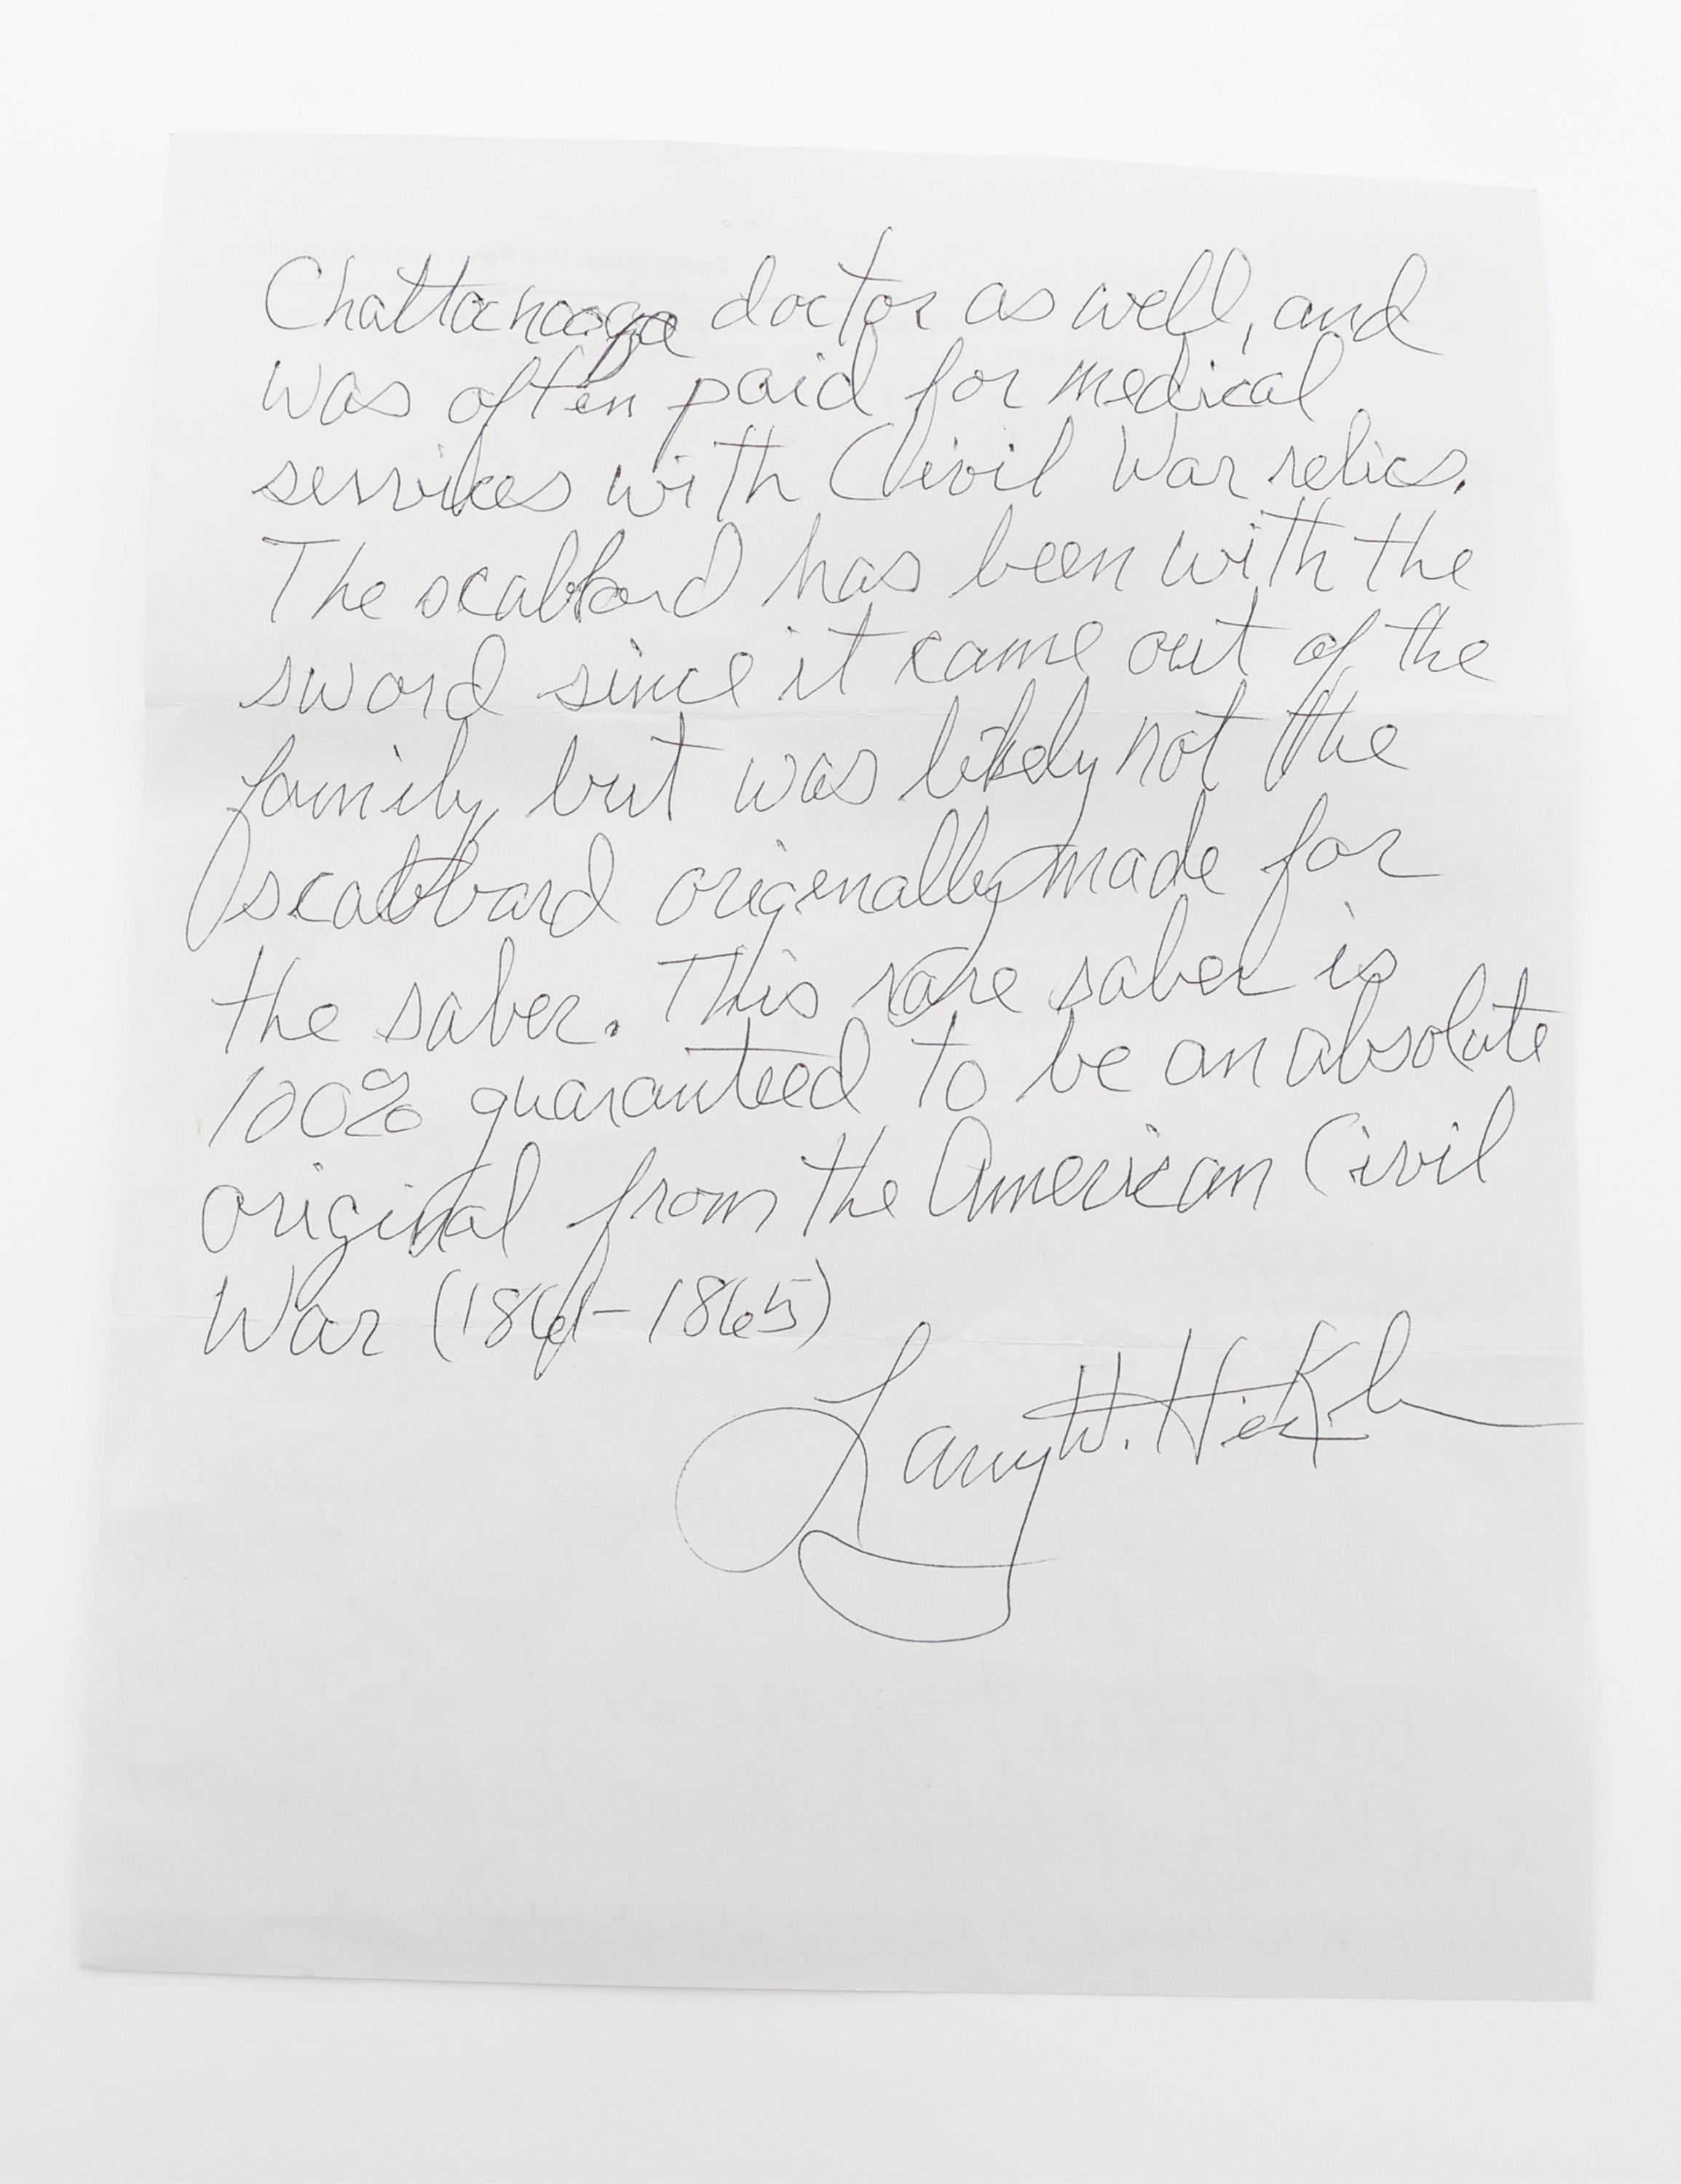 Chattanooga doctor as well, and
was often paid for medical
services with Civil War relics.
The scabbard has been with the
sword since it came out of the
family, but was likely not the
scabbard originally made for
the saber. This rare saber is
100% guaranteed to be an absolute
original from the American Civil
War (1861-1865)
Larry W.